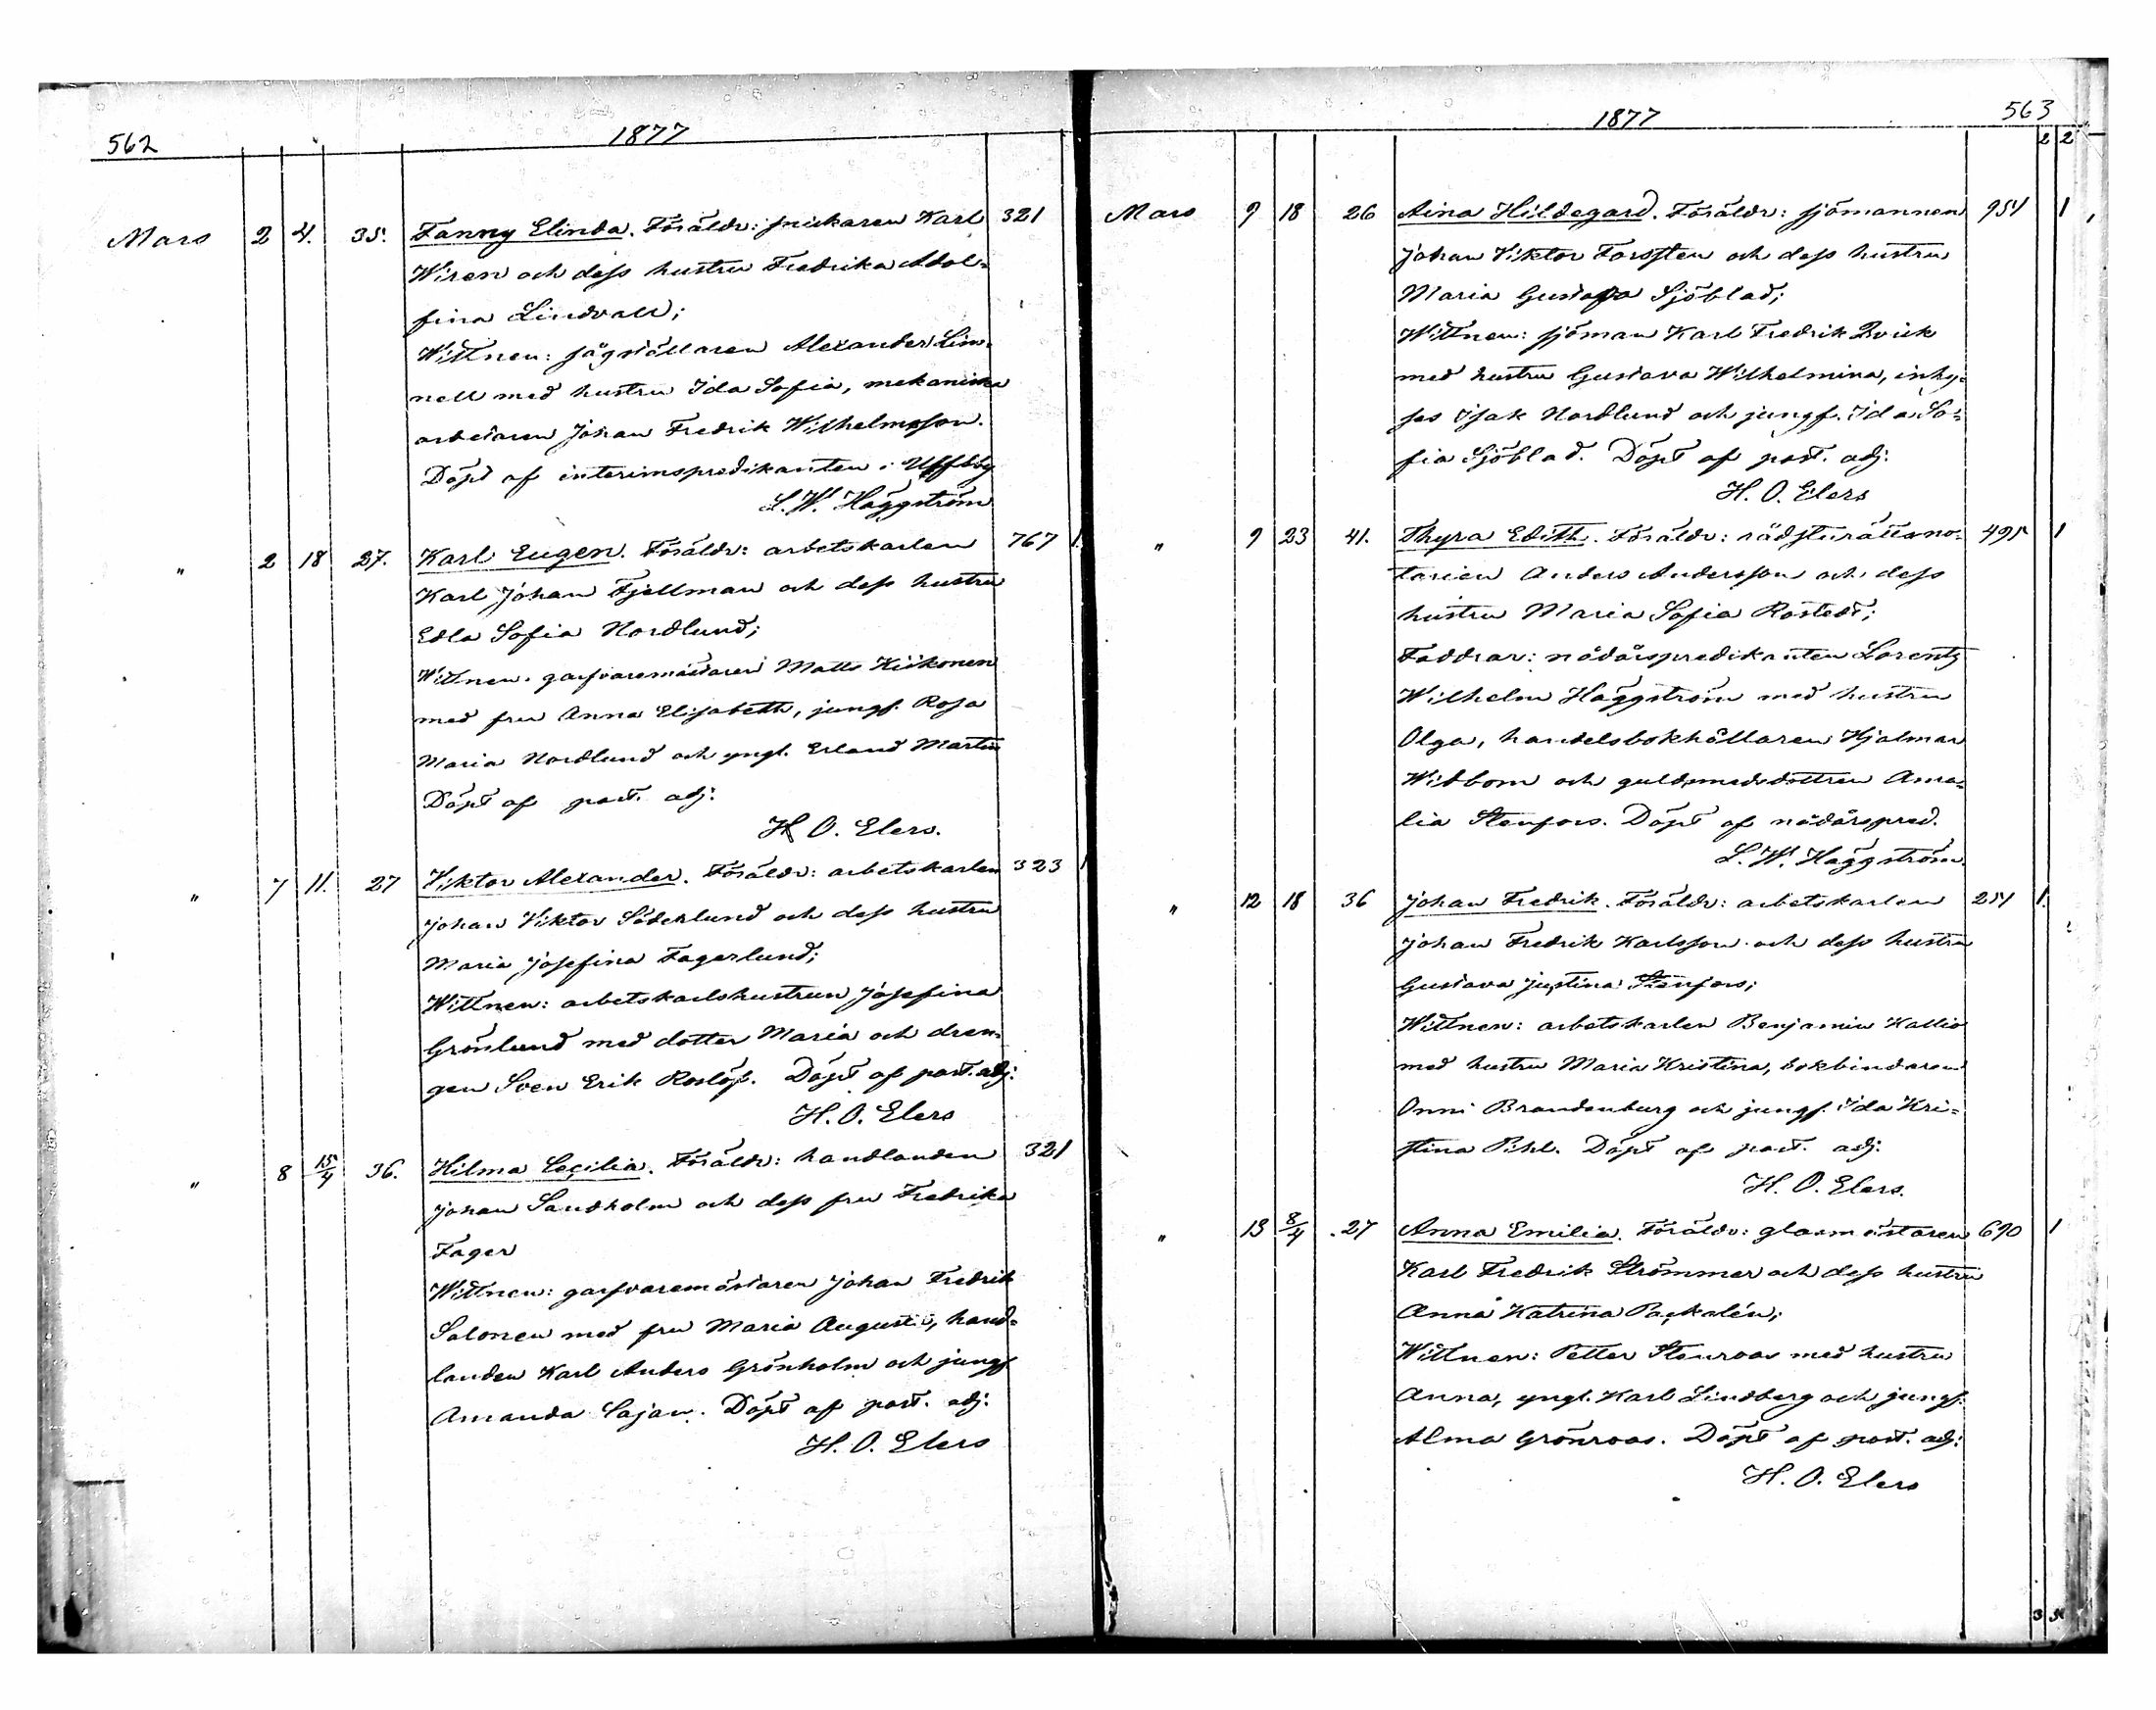 562
1877
Mars 2 4. 35. Fanny Elinda. Föräldr: prickaren Karl 321
Wiren och dess hustru Fredrika Adol-
fina Lindvall;
Wittnen: sågställaren Alexander Lin-
nell med hustru Ida Sofia, mekaniska
arbetaren Johan Fredrik Wilhelmsson.
Döpt af interimspredikanten i Ulfsby
L. W. Häggström
" 2 18 27. Karl Eugen. Föräldr: arbetskarlen 767 1.
Karl Johan Fjellman och dess hustru
Edla Sofia Nordlund;
Wittnen: garfvaremästaren Matts Kiikonen
med fru Anna Elisabeth, jungf. Rosa
Maria Nordlund och yngl. Erland Martin
Döpt af past. adj:
H. O. Elers.
" 7 11. 27 Viktor Alexander. Föräldr: arbetskarlen 323 1
Johan Viktor Söderlund och dess hustru
Maria Josefina Fagerlund;
Wittnen: arbetskarlshustrun Josefina
Grönlund med dotter Maria och dren-
gen Sven Erik Roslöf. Döpt af past. adj:
H. O. Elers
" 8 15/4 36. Hilma Cecilia. Föräldr: handlanden 321
Johan Sandholm och dess fru Fredrika
Fager
Wittnen: garfvaremästaren Johan Fredrik
Salonen med fru Maria Augusta, hand-
landen Karl Anders Grönholm och jungf
Amanda Cajan. Döpt af past. adj:
H. O. Elers
563
1877
2 2
Mars 9 18 26 Aina Hildegard. Föräldr: sjömannen 954 1
Johan Viktor Forssten och dess hustru
Maria Gustafva Sjöblad;
Wittnen: sjöman Karl Fredrik Qvick
med hustru Gustava Wilhelmina, inhy-
ses Isak Nordlund och jungf. Ida So-
fia Sjöblad. Döpt af past. adj:
H. O. Elers
" 9 23 41. Thyra Edith. Föräldr: rådsturättsno- 495 1
tarien Anders Andersson och dess
hustru Maria Sofia Rostedt;
Faddrar: nådårspredikanten Lorentz
Wilhelm Häggström med hustru
Olga, handelsbokhållaren Hjalmar
Widbom och guldsmedsdottren Ama-
lia Stenfors. Döpt af nådårspred.
L. W. Häggström.
" 12 18 36 Johan Fredrik. Föräldr: arbetskarlen 254 1.
Johan Fredrik Karlsson och dess hustru
Gustava Justina Stenfors;
Wittnen: arbetskarlen Benjamin Kallio
med hustru Maria Kristina, bokbindaren
Onni Brandenburg och jungf. Ida Kri-
stina Pihl. Döpt af past. adj:
H. O. Elers.
" 13 8/4 27 Anna Emilia. Föräldr: glasmästaren 690 1
Karl Fredrik Strömmer och dess hustru
Anna Katrina Packalén;
Wittnen: Petter Stenroos med hustru
Anna, yngl. Karl Lindberg och jungf.
Alma Grönroos. Döpt af past. adj:
H. O. Elers